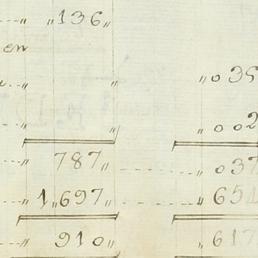 „ „136„
en
„ „ „035
„ „ „002
„ 787„ „037
„ 1„697„ „651
„ 910„ „617